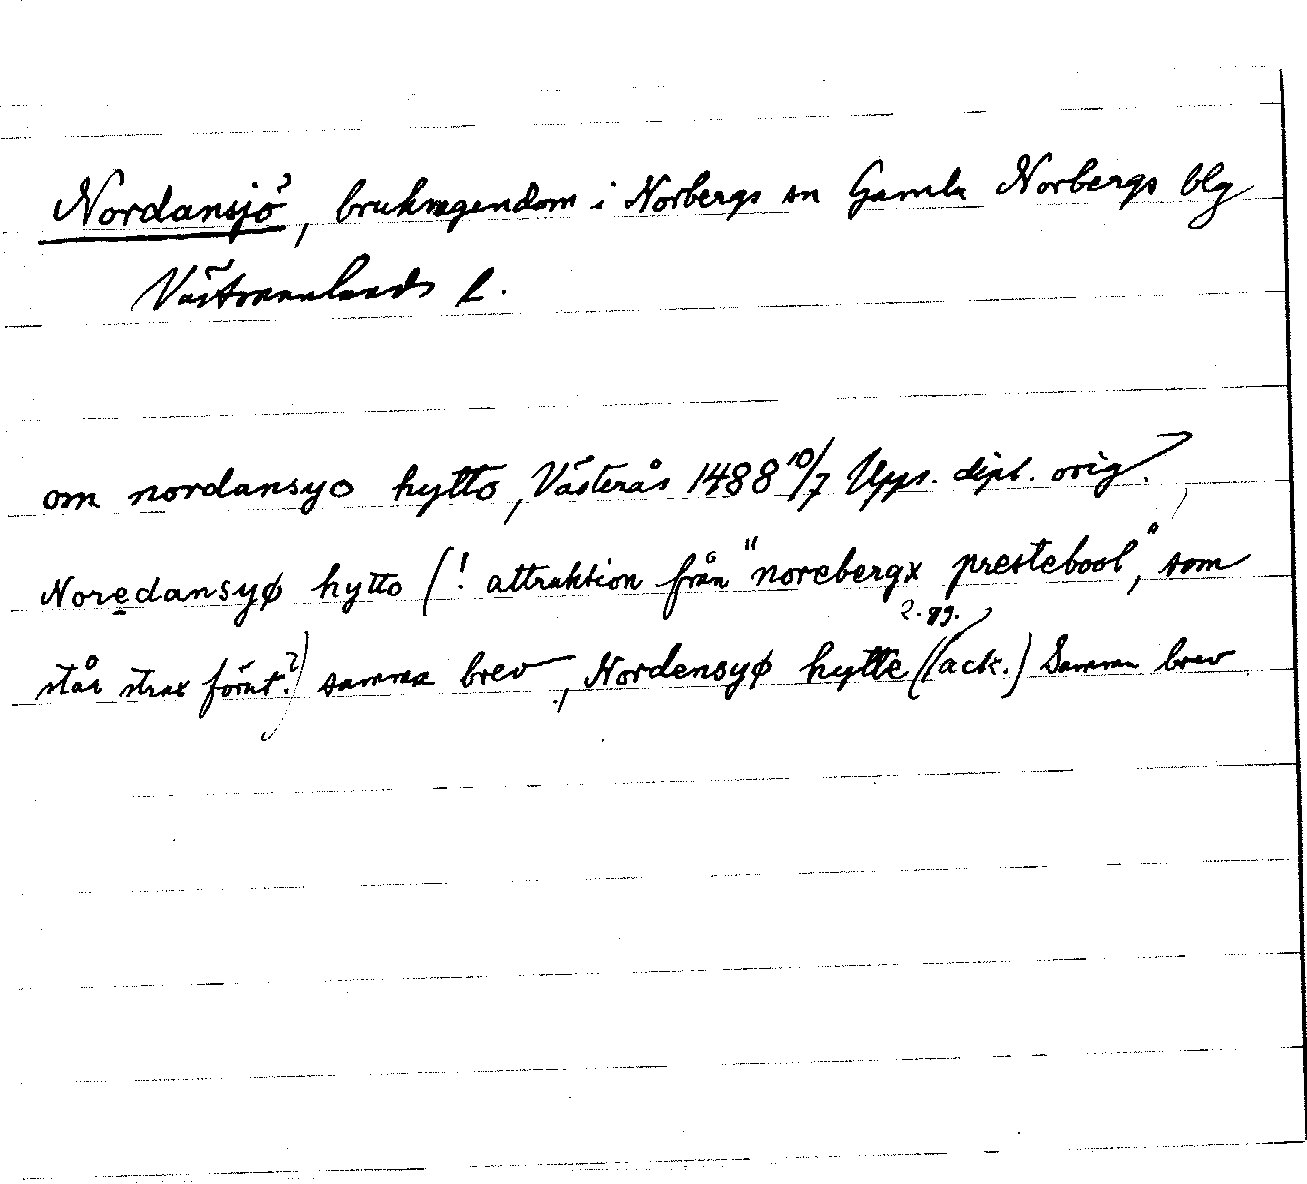 Nordansjö, bruksegendom i Norbergs sn Gamla Norbergs blg
Västmanlands l.
om nordansyo hytto, Västerås 1488 10/7 Upps. dipl. orig.
Noredansyø hytto (! attraktion från "norebergx prestebool", som
står strax förut?) samma brev, Nordensyø hytte (2 ggr. ack.) Samma brev